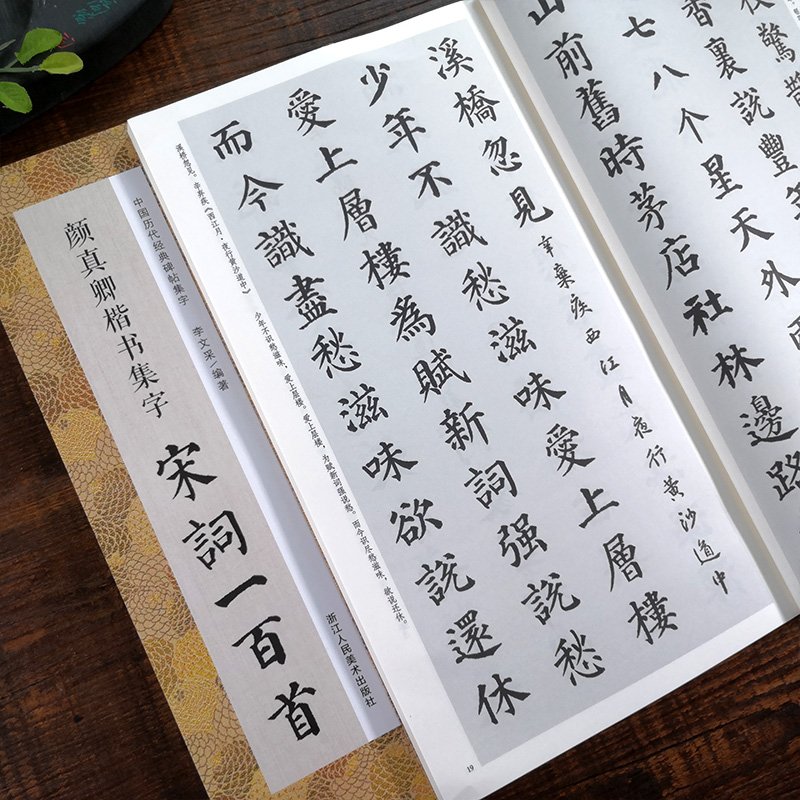 驚
香裏說豐
七八个星天外
山前舊時茅店社林邊路
溪橋忽見 辛棄疾西江月夜行黄沙道中
少年不識愁滋味愛上層樓
愛上層樓為賦新詞强說愁
而今識盡愁滋味欲說還休
溪桥忽见。辛弃疾《西江月·夜行黄沙道中》 少年不识愁滋味，爱上层楼。爱上层楼，为赋新词强说愁。而今识尽愁滋味，欲说还休。
19
中国历代经典碑帖集字 李文采/编著
浙江人民美术出版社
颜真卿楷书集字
宋詞一百首